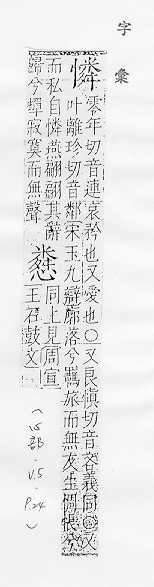 字彙
憐
零年切音連哀矜也又愛也○又良慎切音吝義同又
叶離珍切音鄰宋玉九辯廓落兮羈旅而無友生惆悵兮
而私自憐燕翩翩其辭
歸兮蟬寂寞而無聲
同上見周宣
王石鼓文
(心部. V.5. P.24)